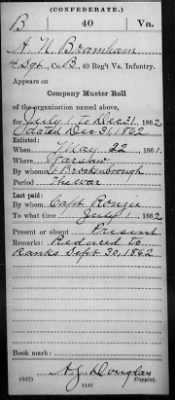 (CONFEDERATE.)
B 40 Va.
A. N. Bramham
4 Sgt, Co. B, 40 Reg't Va. Infantry.
Appears on
Company Muster Roll
of the organization named above,
for July 1 to Dec 31, 1862
dated Dec 31, 1862
Enlisted:
When May 22, 1861.
Where Warsaw
By whom Brockenbrough
Period The war
Last paid:
By whom Capt
To what time July 1, 1862
Present or absent Present
Remarks: Reduced to
ranks Sept. 30, 1862
Book mark:
(642) Copyist.